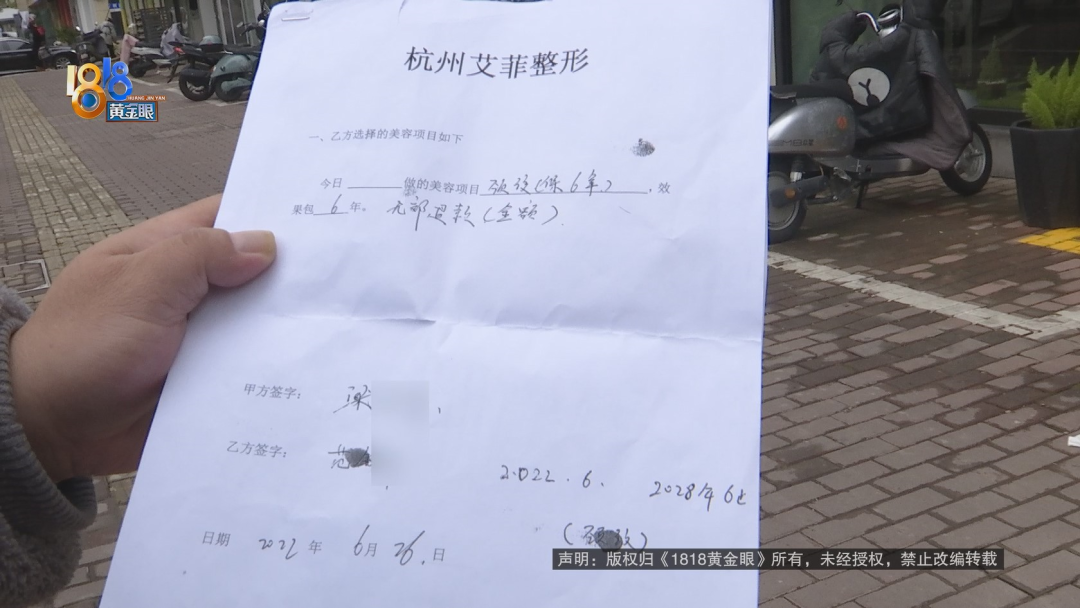 1818
HUANG JIN YAN
黄金眼
杭州艾菲整形
一、乙方选择的美容项目如下
今日______做的美容项目 颈纹(保6年)，效
果包 6 年。 无需贷款(全额).
甲方签字： 梁
乙方签字： 范
2022.6. 2028年6止
日期 2022 年 6月 26.日
声明：版权归《1818黄金眼》所有，未经授权，禁止改编转载